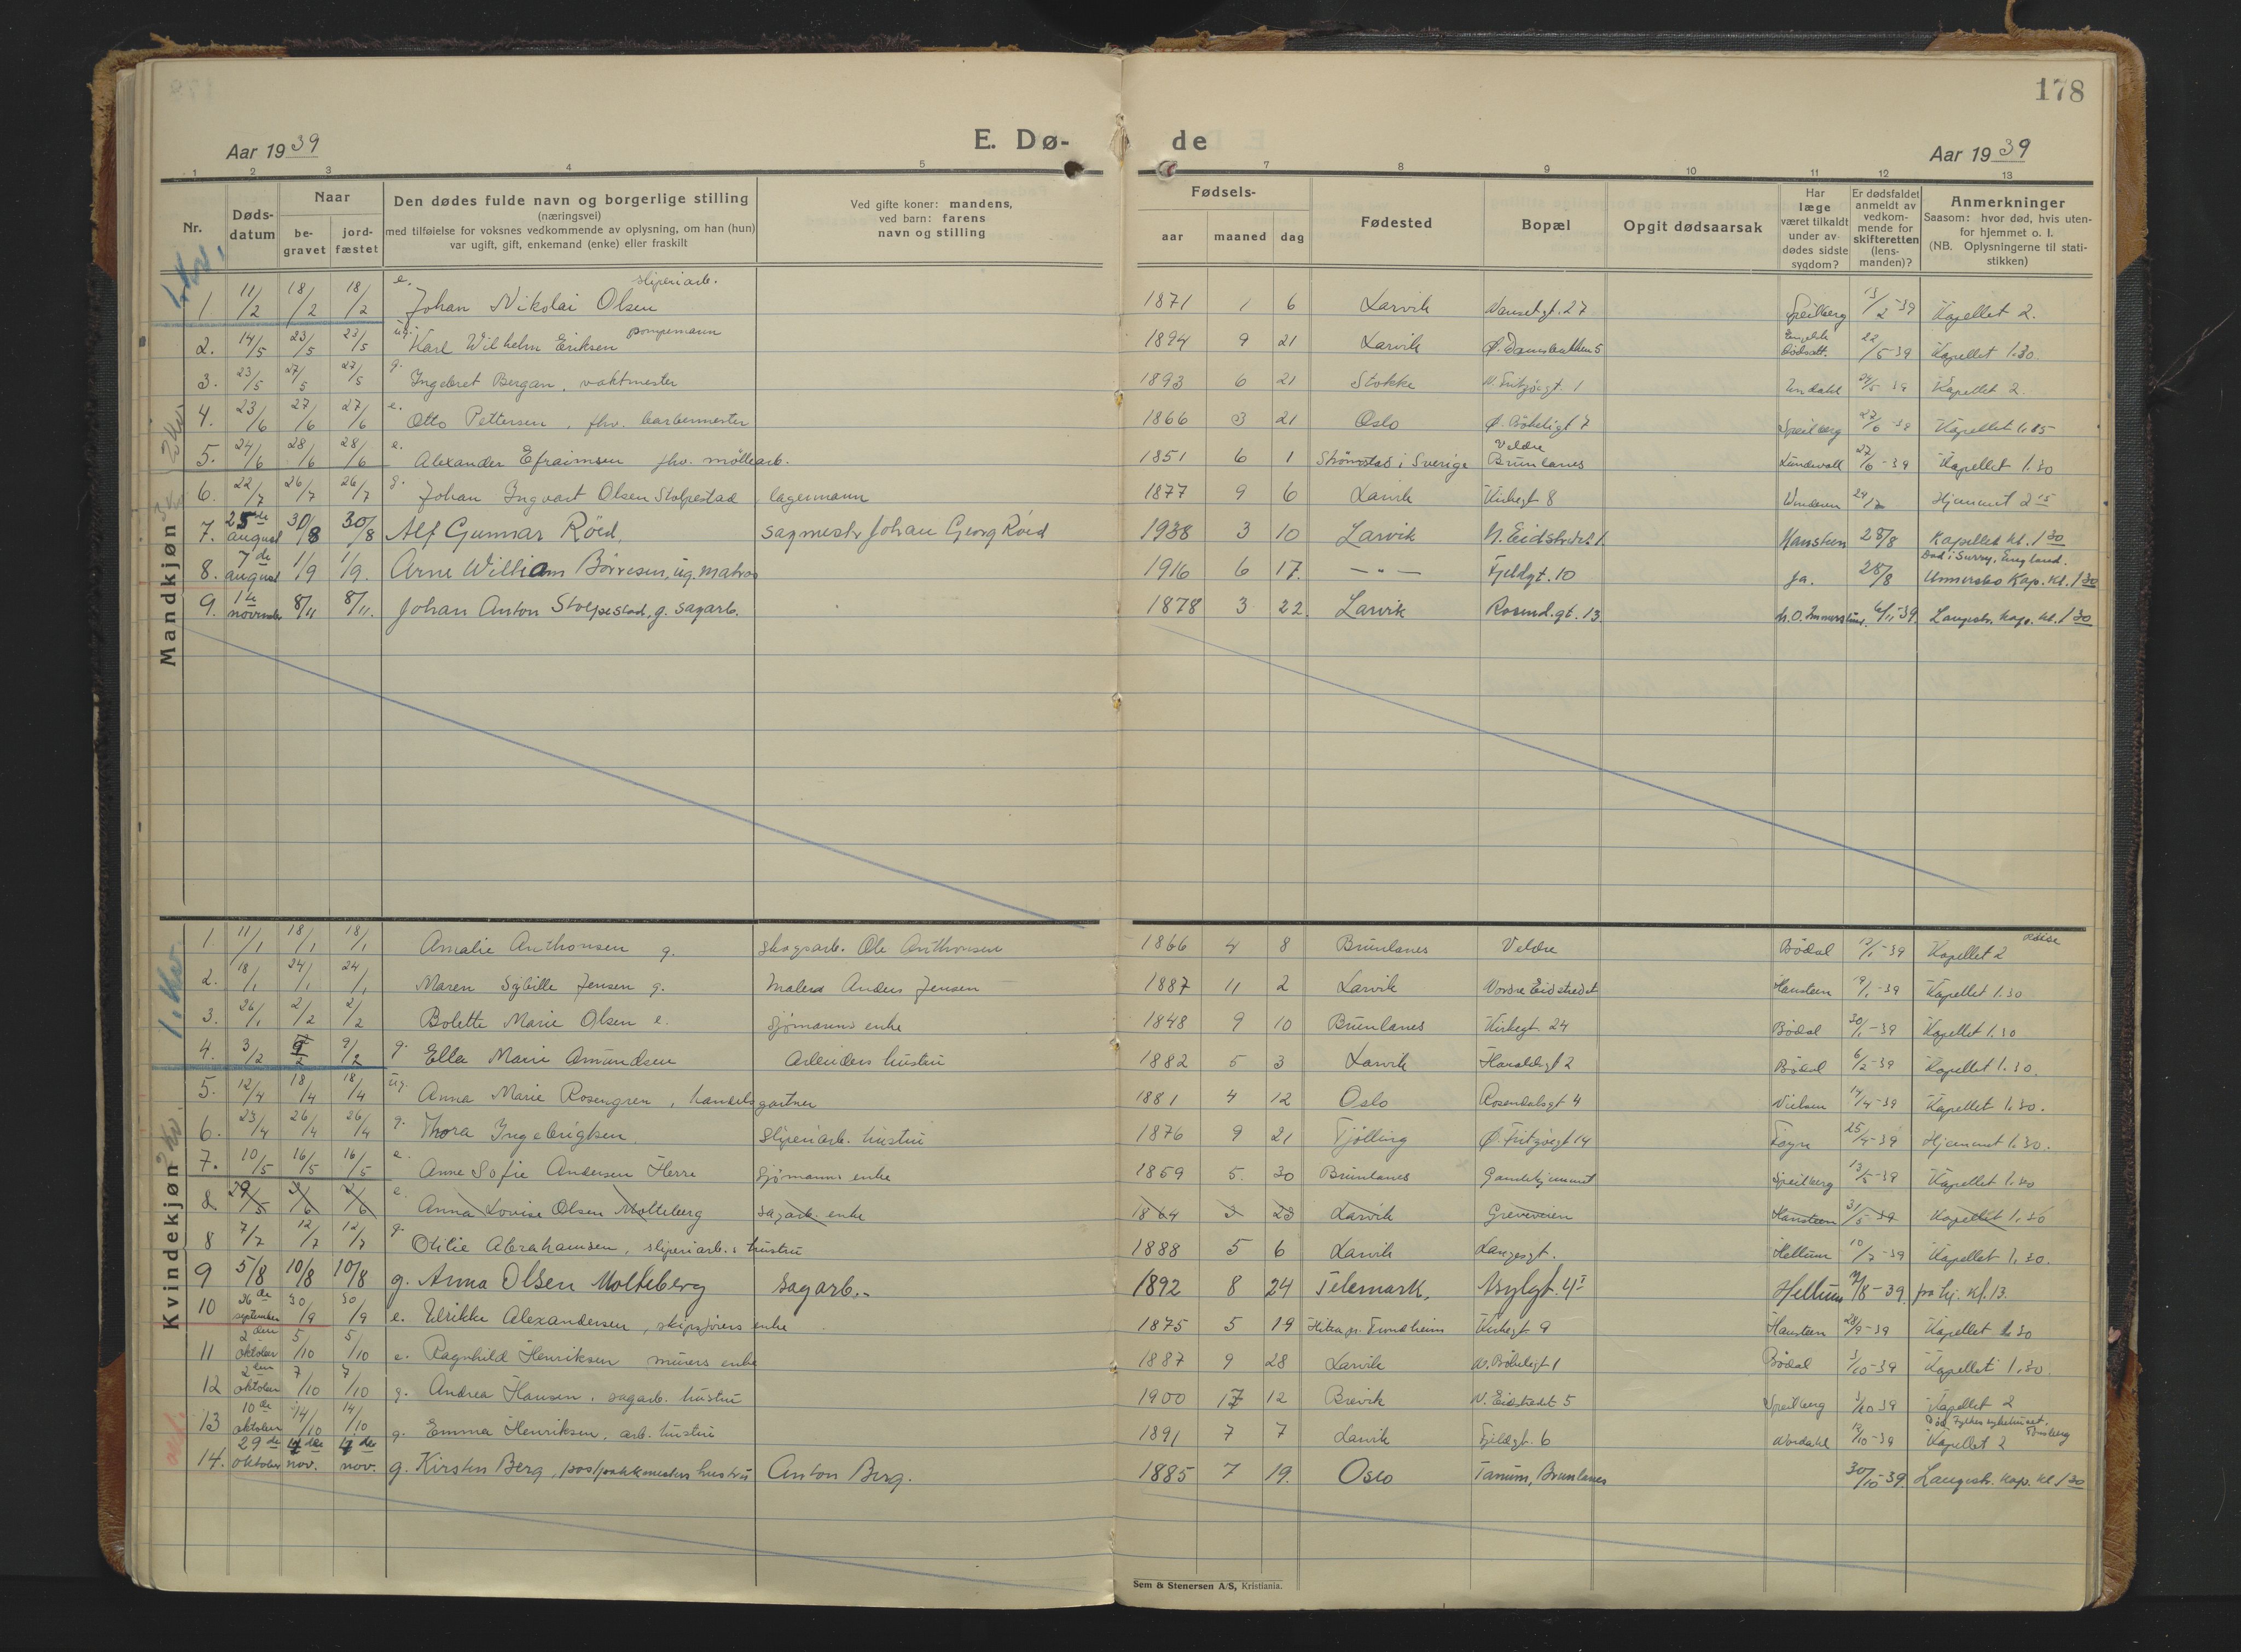 178
Aar 1939 E. Dø- de Aar 1939
1 2 3 4 5 7 8 9 10 11 12 13
Nr. Døds-datum Naar be-gravet jord-fæstet
Den dødes fulde navn og borgerlige stilling
(næringsvei)
med tilføielse for voksnes vedkommende av oplysning, om han (hun)
var ugift, gift, enkemand (enke) eller fraskilt
Ved gifte koner: mandens,
ved barn: farens
navn og stilling
Fødsels- aar maaned dag
Fødested
Bopæl
Opgit dødsaarsak
Har læge været tilkaldt under av- dødes sidste sygdom?
Er dødsfaldet anmeldt av vedkom- mende for skifteretten (lens- manden)?
Anmerkninger
Saasom: hvor død, hvis uten-
for hjemmet o. l.
(NB. Oplysningerne til stati-
stikken)
Mandkjøn
1. 11/2 18/2 18/2 e. Johan Nikolai Olsen sliperiarb. 1871 1 6 Larvik Nansetgt. 27 Speilberg 13/2-39 Kapellet 2.
2. 14/5 23/5 23/5 ug. Karl Wilhelm Eriksen pompemann 1894 9 21 Larvik Ø. 22/5-39 Kapellet 1.30
3. 23/5 27/5 27/5 g. Ingebret Bergan, vaktmester 1893 6 21 Stokke V. Fritzøegt. 1 24/5 39 Kapellet 2.
4. 23/6 27/6 27/6 e. Otto Pettersen, fhv. barbermester 1866 3 21 Oslo Ø. Bökeligt 7 Speilberg 27/6-39 Kapellet 1.15
5. 24/6 28/6 28/6 e. Alexander Efraimsen fhv. möllearb. 1851 6 1 Strömstad i Sverige Veldre Brunlanes Lundevall 27/6-39 Kapellet 1.30
6. 22/7 26/7 26/7 g. Johan Ingvart Olsen Stolpestad lagermann 1877 9 6 Larvik Kirkegt 8 24/7 Hjemmet 2 15
7. 25de august 30/8 30/8 Alf Gunnar Röed, sagmestr Johan Georg Röed 1938 3 10 Larvik N. Eidstredet 1. Hansteen 28/8 Kapellet kl. 1 30
8. 7de august 1/9 1/9. Arne William Börresen, ug. matros 1916 6 17. — " — Fjeldgt. 10 Ja. 28/8 Död i Surry, England. Undersbo Kap. Kl. 1 30
9. 1ste november 8/11 8/11. Johan Anton Stolpestad, g. sagarb. 1878 3 22. Larvik Rosend.gt. 13. 6/11-39 Langestr. Kap. kl. 1 30
Kvindekjøn
1. Kv.
1. 11/1 18/1 18/1 Amalie Anthonsen g. skogsarb. Ole Anthonsen 1866 4 8 Brunlanes Veldre Bödal 12/1-39 Kapellet 2
2. 18/1 24/1 24/1 Maren Sybille Jensen g. Maler Anders Jensen 1887 11 2 Larvik Vordre Eidstredet Hansteen 19/1-39 Kapellet 1.30
3. 26/1 2/2 2/2 Bolette Marie Olsen e. sjømanns enke 1848 9 10 Brunlanes Kirkegt. 24 Bödal 30/1-39 Kapellet 1.30
4. 3/2 9/2 9/2 g. Ella Marie Amundsen arbeiders hustru 1882 5 3 Larvik Haraldsgt 2 Bödal 6/2-39 Kapellet 1.30.
5. 12/4 18/4 18/4 ug. Anna Marie Rosengren, handelsgartner 1881 4 12 Oslo Rosendalsgt 4 Nielsen 14/4-39 Kapellet 1.30.
6. 23/4 26/4 26/4 g. Thora Ingebrigtsen. sliperiarb. hustru 1876 9 21 Tjölling Ø. Fritzøegt 14 Fagre 25/4-39 Hjemmet 1.30.
7. 10/5 16/5 16/5 e. Anne Sofie Andersen Herre sjømanns enke 1859 5. 30 Brunlanes Gamlehjemmet Speilberg 13/5-39 Kapellet 1.30
8. 29/5 3/6 3/6 e. Anna Lovise Olsen Molteberg sagarb. enke 1864 3 23 Larvik Greveveien Hansteen 31/5-39 Kapellet 1.30
8 7/7 12/7 12/7 g. Otilie Abrahamsen, sliperiarb.s hustru 1888 5 6 Larvik Langesgt. Hellum 10/7-39 Kapellet 1.30.
9 5/8 10/8 10/8 g. Anna Olsen Molteberg sagarb.- 1892 8 24 Telemark, Asylgt. 4I Hellum 7/8-39. fra hj. Kl. 13.
10 26de september 30/9 30/9 e. Ulrikke Alexandersen, skipsførers enke 1875 5 19 Hitra pr. Trondheim Kirkegt 9 Hansteen 28/9-39 Kapellet 1.30
11 2den oktober 5/10 5/10 e. Ragnhild Henriksen murers enke 1887 9 28 Larvik V. Bökeligt 1 Bödal 3/10-39 Kapellet 1.30.
12 2den oktober 7/10 7/10 g. Andrea Hansen, sagarb. hustru 1900 12 Brevik V. Eidstredet 5 Speilberg 3/10 39 Kapellet 2
13 10de oktober 14/10 14/10 g. Emma Henriksen, arb. hustru 1891 7 7 Larvik Fjeldgt. 6 Nordahl 12/10-39 Död Fylkessykehuset, Tönsberg Kapellet 2
14. 29de oktober 4de nov. 4de nov. g. Kirsten Berg, postpakkmesters hustru Anton Berg. 1885 7 19. Oslo Tanum, Brunlanes 30/10-39. Langestr. Kap. kl. 1 30
Sem & Stenersen A/S, Kristiania.